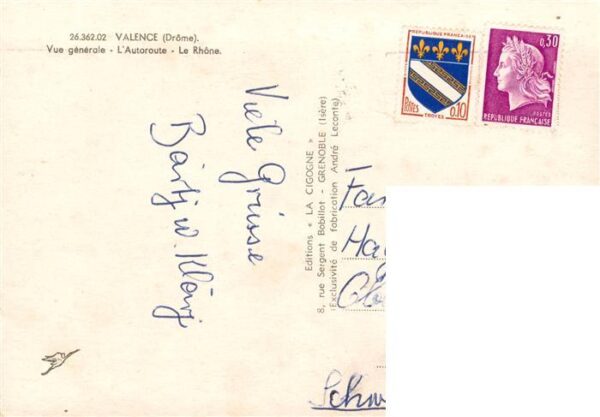 26.362.02 VALENCE (Drôme).
Vue générale - L'Autoroute - Le Rhône.
REPUBLIQUE FRANÇAISE
POSTES
0,10
TROYES
0,30
POSTES
REPUBLIQUE FRANÇAISE
Viele Grüsse
Editions « LA CIGOGNE »
8, rue Sergent Bobillot - GRENOBLE (Isère)
(Exclusivité de fabrication André Leconte)
Fam
Ha
Schw